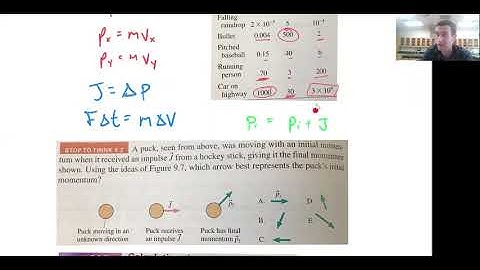 Pₓ = m Vₓ
P_y = m V_y
J = ΔP
FΔt = mΔV
Falling
raindrop 2 × 10⁻⁵ 5 10⁻⁴
Bullet 0.004 500 2
Pitched
baseball 0.15 40 6
Running
person 70 3 200
Car on
highway 1000 30 3 × 10⁴
Pᵢ = Pᵢ + J
STOP TO THINK 9.2 A puck, seen from above, was moving with an initial momen-
tum when it received an impulse J⃗ from a hockey stick, giving it the final momentum
shown. Using the ideas of Figure 9.7, which arrow best represents the puck's initial
momentum?
J⃗
p⃗f
A. p⃗ᵢ
B.
C.
D.
E.
Puck moving in an
unknown direction
Puck receives
an impulse J⃗
Puck has final
momentum p⃗f